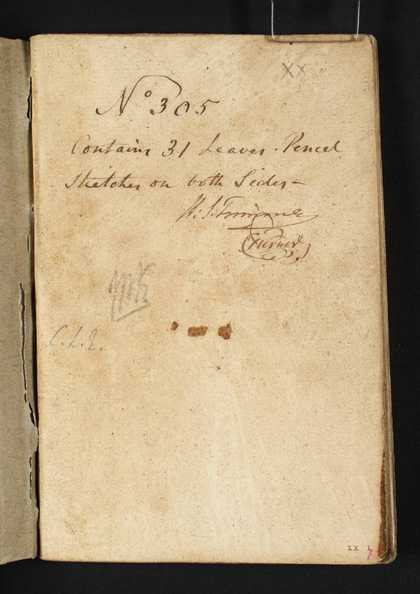 XX
No 305
Contains 31 Leaves. Pencil
Sketches on both Sides -
H. S. Trimmer
C Turner
C. L. E.
XX 1